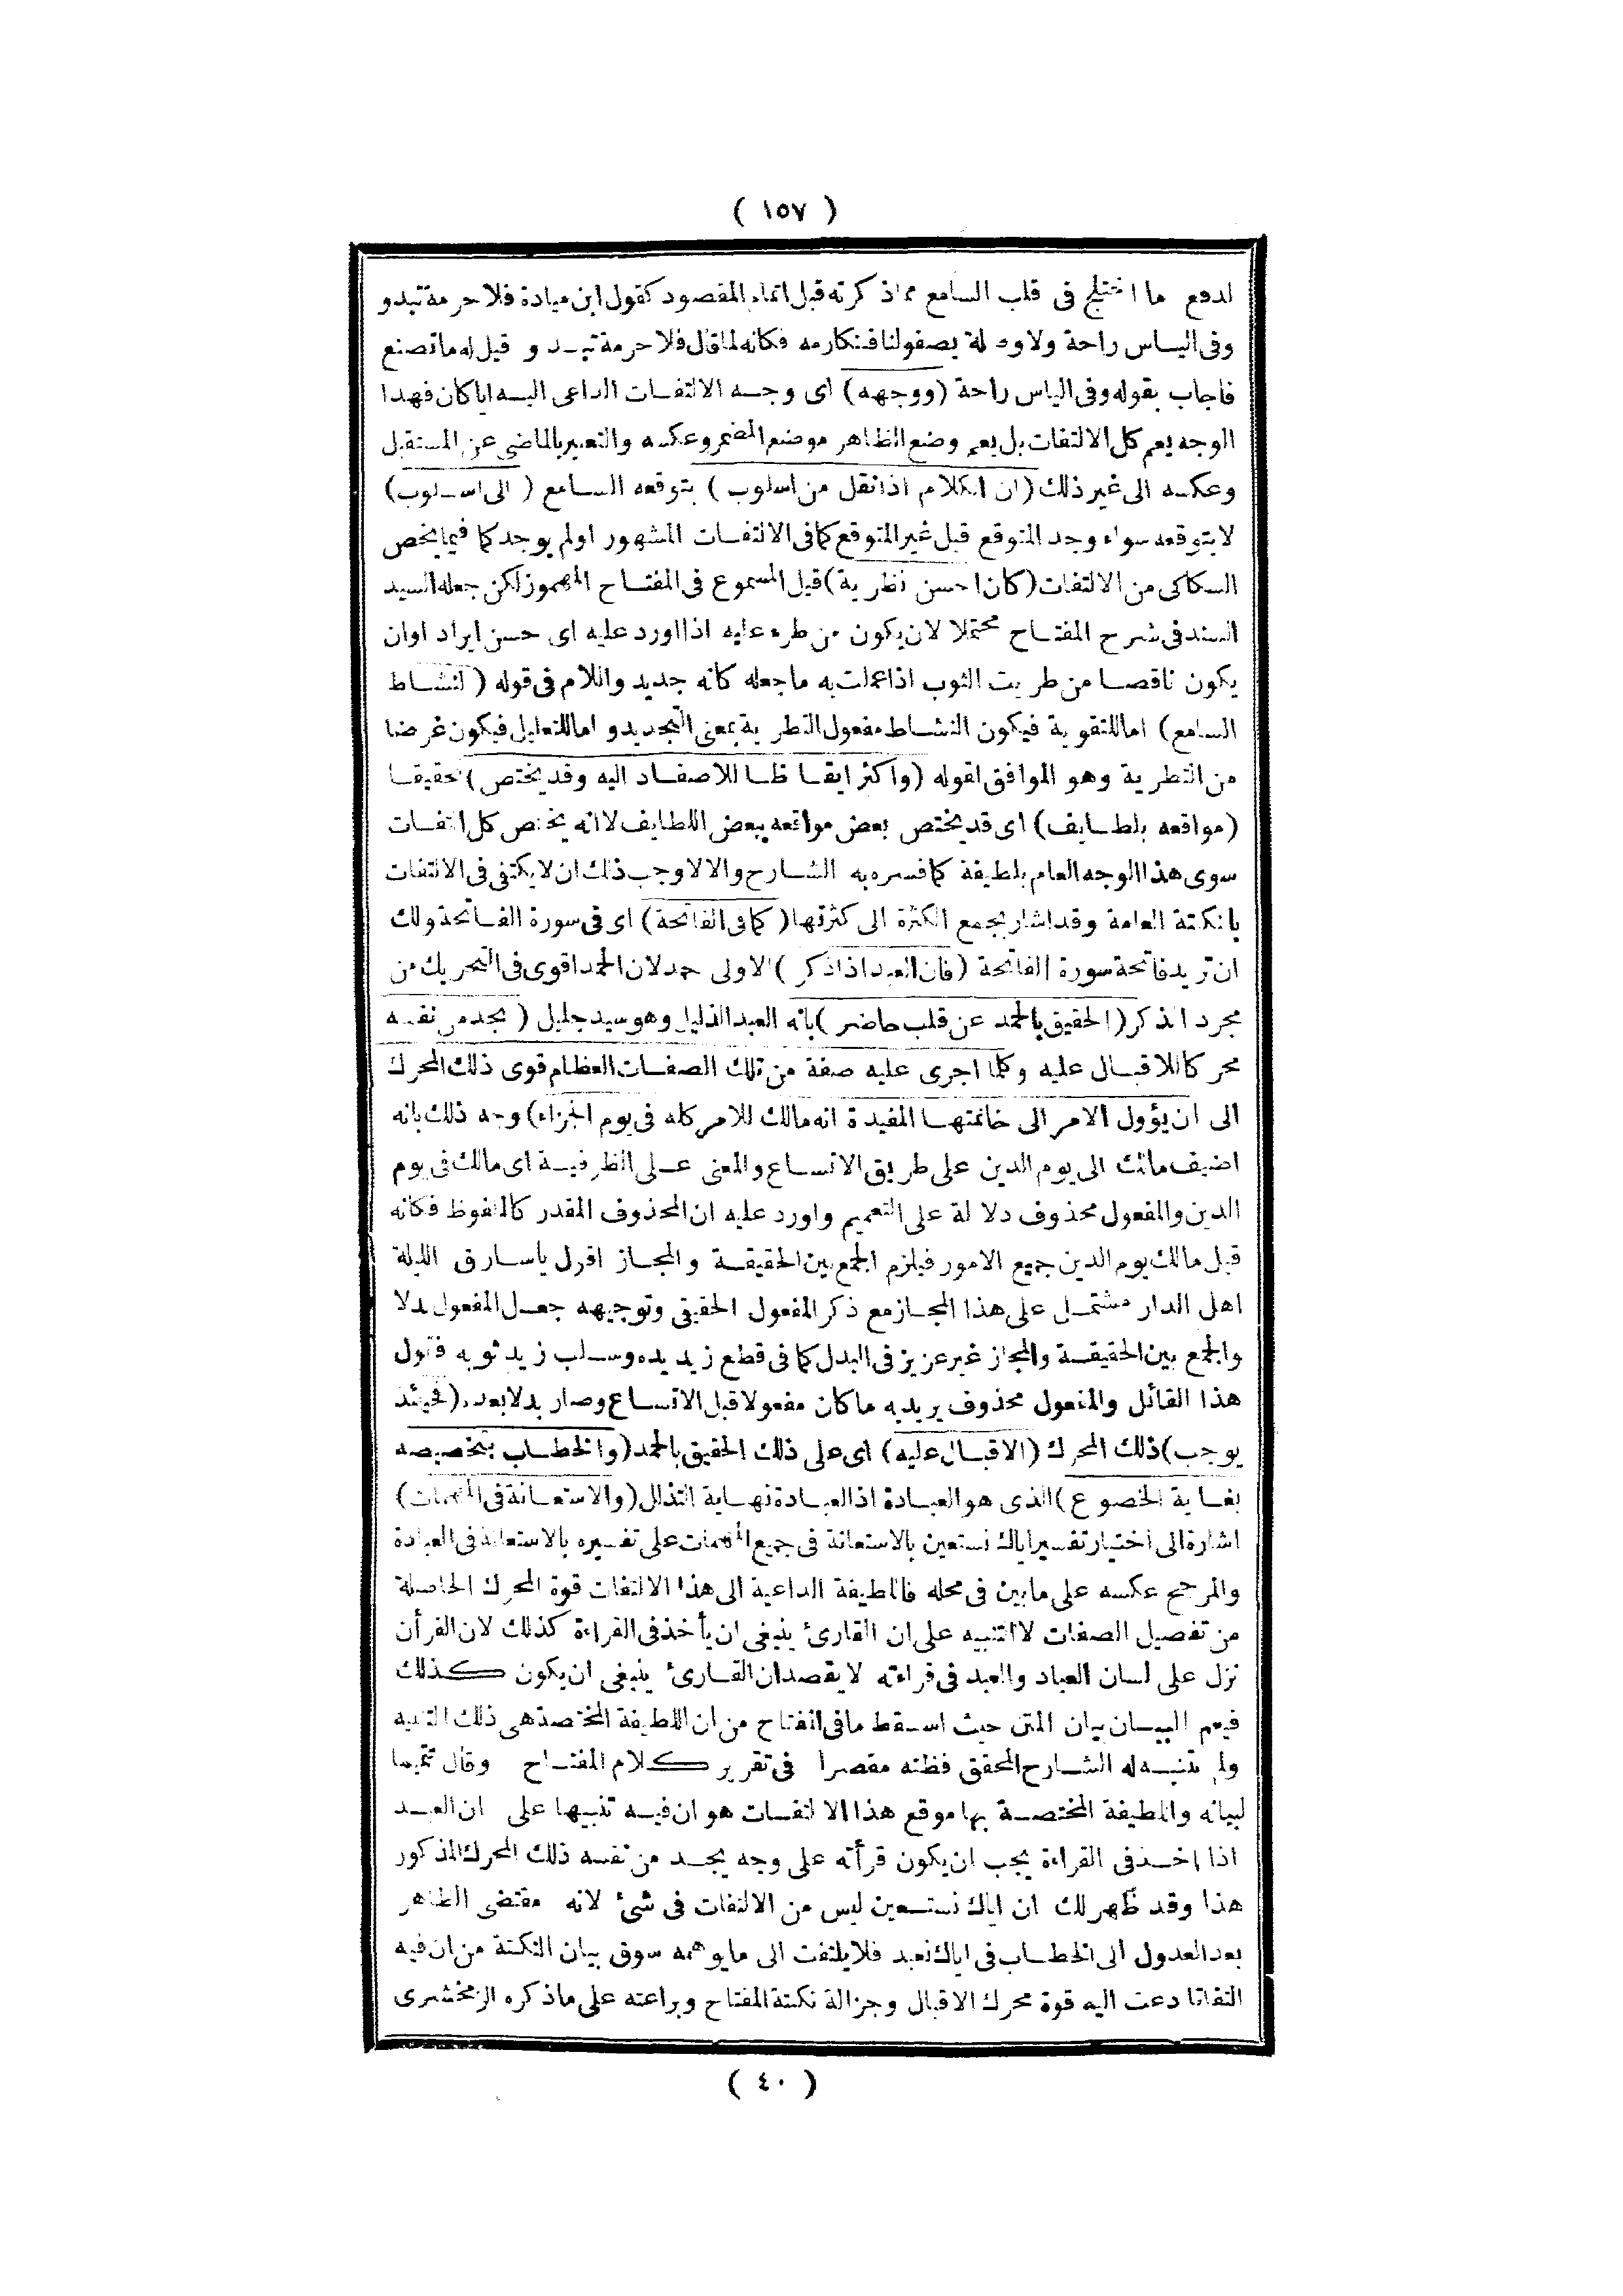 ( ١٥٧ )
لدفع ما اختلج فى قلب السامع مما ذكرته قبل اتمام المقصود كقول ابن ميادة فلا حرمة تبدو
وفى اليأس راحة ولا وصله يصفو لنا فنكارمه فكانه لما قال فلا حرمة تبدو قيل له ما تصنع
فاجاب بقوله وفى الياس راحة (ووجهه) اى وجه الالتفات الداعى اليه ايا كان فهذا
الوجه يعم كل الالتفات بل يعم وضع الظاهر موضع المضمر وعكسه والتعبير بالماضى عن المستقبل
وعكسه الى غير ذلك (ان الكلام اذا نقل من اسلوب) يتوقعه السامع (الى اسلوب)
لا يتوقعه سواء وجد المتوقع قبل غير المتوقع كما فى الالتفات المشهور او لم يوجد كما فيما يخص
السكاكى من الالتفات (كان احسن نظرية) قيل المسموع فى المفتاح المهموز لكن جعله السيد
السند فى شرح المفتاح محتملا لان يكون من طرء عليه اذا اورد عليه اى حسن ايراد او ان
يكون ناقصا من طريت الثوب اذا عملت به ما جعله كانه جديد واللام فى قوله (لنشاط
السامع) اما للتقوية فيكون النشاط مفعول التطرية بمعنى التجديد و اما للتعليل فيكون غرضا
من التطرية وهو الموافق لقوله (واكثر ايقاظا للاصغاء اليه وقد يختص) تحقيقا
(مواقعه بلطايف) اى قد يختص بعض مواقعه ببعض اللطايف لا انه يختص كل التفات
سوى هذا الوجه العام بلطيفة كما فسره به الشارح والا لاوجب ذلك ان لا يكتفى فى الالتفات
بالنكتة العامة وقد اشار بجمع الكثرة الى كثرتها (كما فى الفاتحة) اى فى سورة الفاتحة ولك
ان تريد فاتحة سورة الفاتحة (فان العبد اذا ذكر) الاولى حمد لان الحمد اقوى فى التحريك من
مجرد الذكر (الحقيق بالحمد عن قلب حاضر) بانه العبد الذليل وهو سيد جليل (يجد من نفسه
محركا للاقبال عليه وكلما اجرى عليه صفة من تلك الصفات العظام قوى ذلك المحرك
الى ان يؤول الامر الى خاتمتها المفيدة انه مالك للامر كله فى يوم الجزاء) وجه ذلك بانه
اضيف مالك الى يوم الدين على طريق الاتساع والمعنى على الظرفية اى مالك فى يوم
الدين والمفعول محذوف دلالة على التعميم واورد عليه ان المحذوف المقدر كالملفوظ فكانه
قيل مالك يوم الدين جميع الامور فيلزم الجمع بين الحقيقة والمجاز اقول ياسارق الليلة
اهل الدار مشتمل على هذا المجاز مع ذكر المفعول الحقيقى وتوجيهه جعل المفعول بدلا
والجمع بين الحقيقة والمجاز غير عزيز فى البدل كما فى قطع زيد يده وسلب زيد ثوبه فقول
هذا القائل والمفعول محذوف يريد به ما كان مفعولا قبل الاتساع وصار بدلا بعده (فحينئذ
يوجب) ذلك المحرك (الاقبال عليه) اى على ذلك الحقيق بالحمد (والخطاب بتخصيصه
بغاية الخضوع) الذى هو العبادة اذ العبادة نهاية التذلل (والاستعانة فى المهمات)
اشارة الى اختيار تفسير اياك نستعين بالاستعانة فى جميع المهمات على تفسيره بالاستعانة فى العبادة
والمرجح عكسه على ما بين فى محله فاللطيفة الداعية الى هذا الالتفات قوة المحرك الحاصلة
من تفصيل الصفات لا التنبيه على ان القارئ ينبغى ان يأخذ فى القراءة كذلك لان القرأن
نزل على لسان العباد والعبد فى قراءته لا يقصد ان القارئ ينبغى ان يكون كذلك
فنعم البيان بيان المتن حيث اسقط ما فى المفتاح من ان اللطيفة المختصة هى ذلك التنبيه
ولم يتنبه له الشارح المحقق فظنه مقصرا فى تقرير كلام المفتاح وقال تتميما
لبيانه واللطيفة المختصة بها موقع هذا الالتفات هو ان فيه تنبيها على ان العبد
اذا اخذ فى القراءة يجب ان يكون قرأته على وجه يجد من نفسه ذلك المحرك المذكور
هذا وقد ظهر لك ان اياك نستعين ليس من الالتفات فى شئ لانه مقتضى الظاهر
بعد العدول الى الخطاب فى اياك نعبد فلا يلتفت الى ما يوهمه سوق بيان النكتة من ان فيه
التفاتا دعت اليه قوة محرك الاقبال وجزالة نكتة المفتاح وبراعته على ما ذكره الزمخشرى
( ٤٠ )